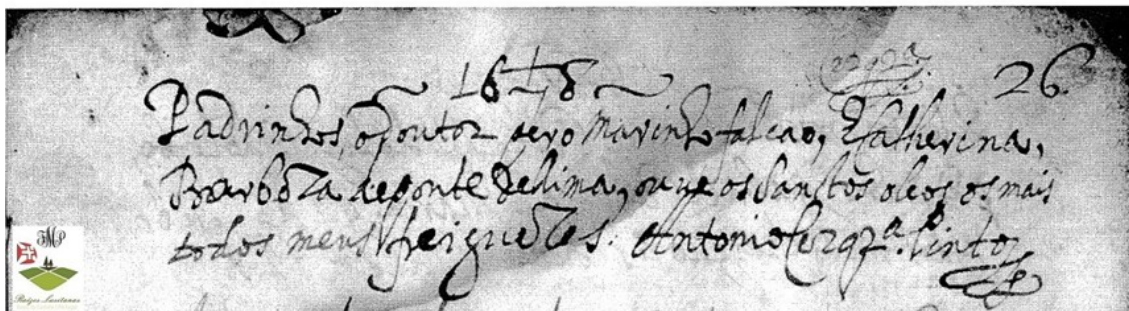 1648 26
Padrinhos, o doutor pero marinho falcao, E Catherina,
Barboza de ponte de Lima, ouve os Sanctos oleos os mais
todos meus freiguezes. Antonio Cerqrª. Pinto